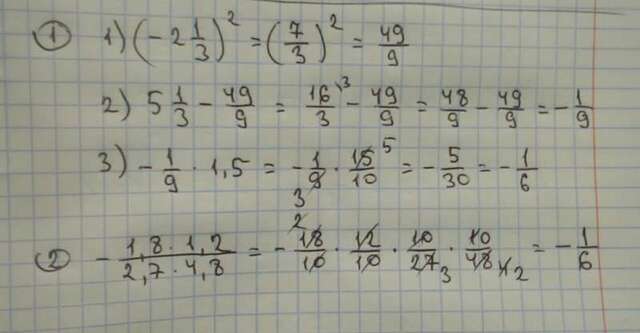 ① 1) (-2 1/3)^2 = (7/3)^2 = 49/9
2) 5 1/3 - 49/9 = 16/3 \3 - 49/9 = 48/9 - 49/9 = -1/9
3) -1/9 · 1,5 = -1/9 3 · 15 5/10 = -5/30 = -1/6
② -1,8 · 1,2/2,7 · 4,8 = -18 2/10 · 12/10 · 10/27 3 · 10/48 4 2 = -1/6